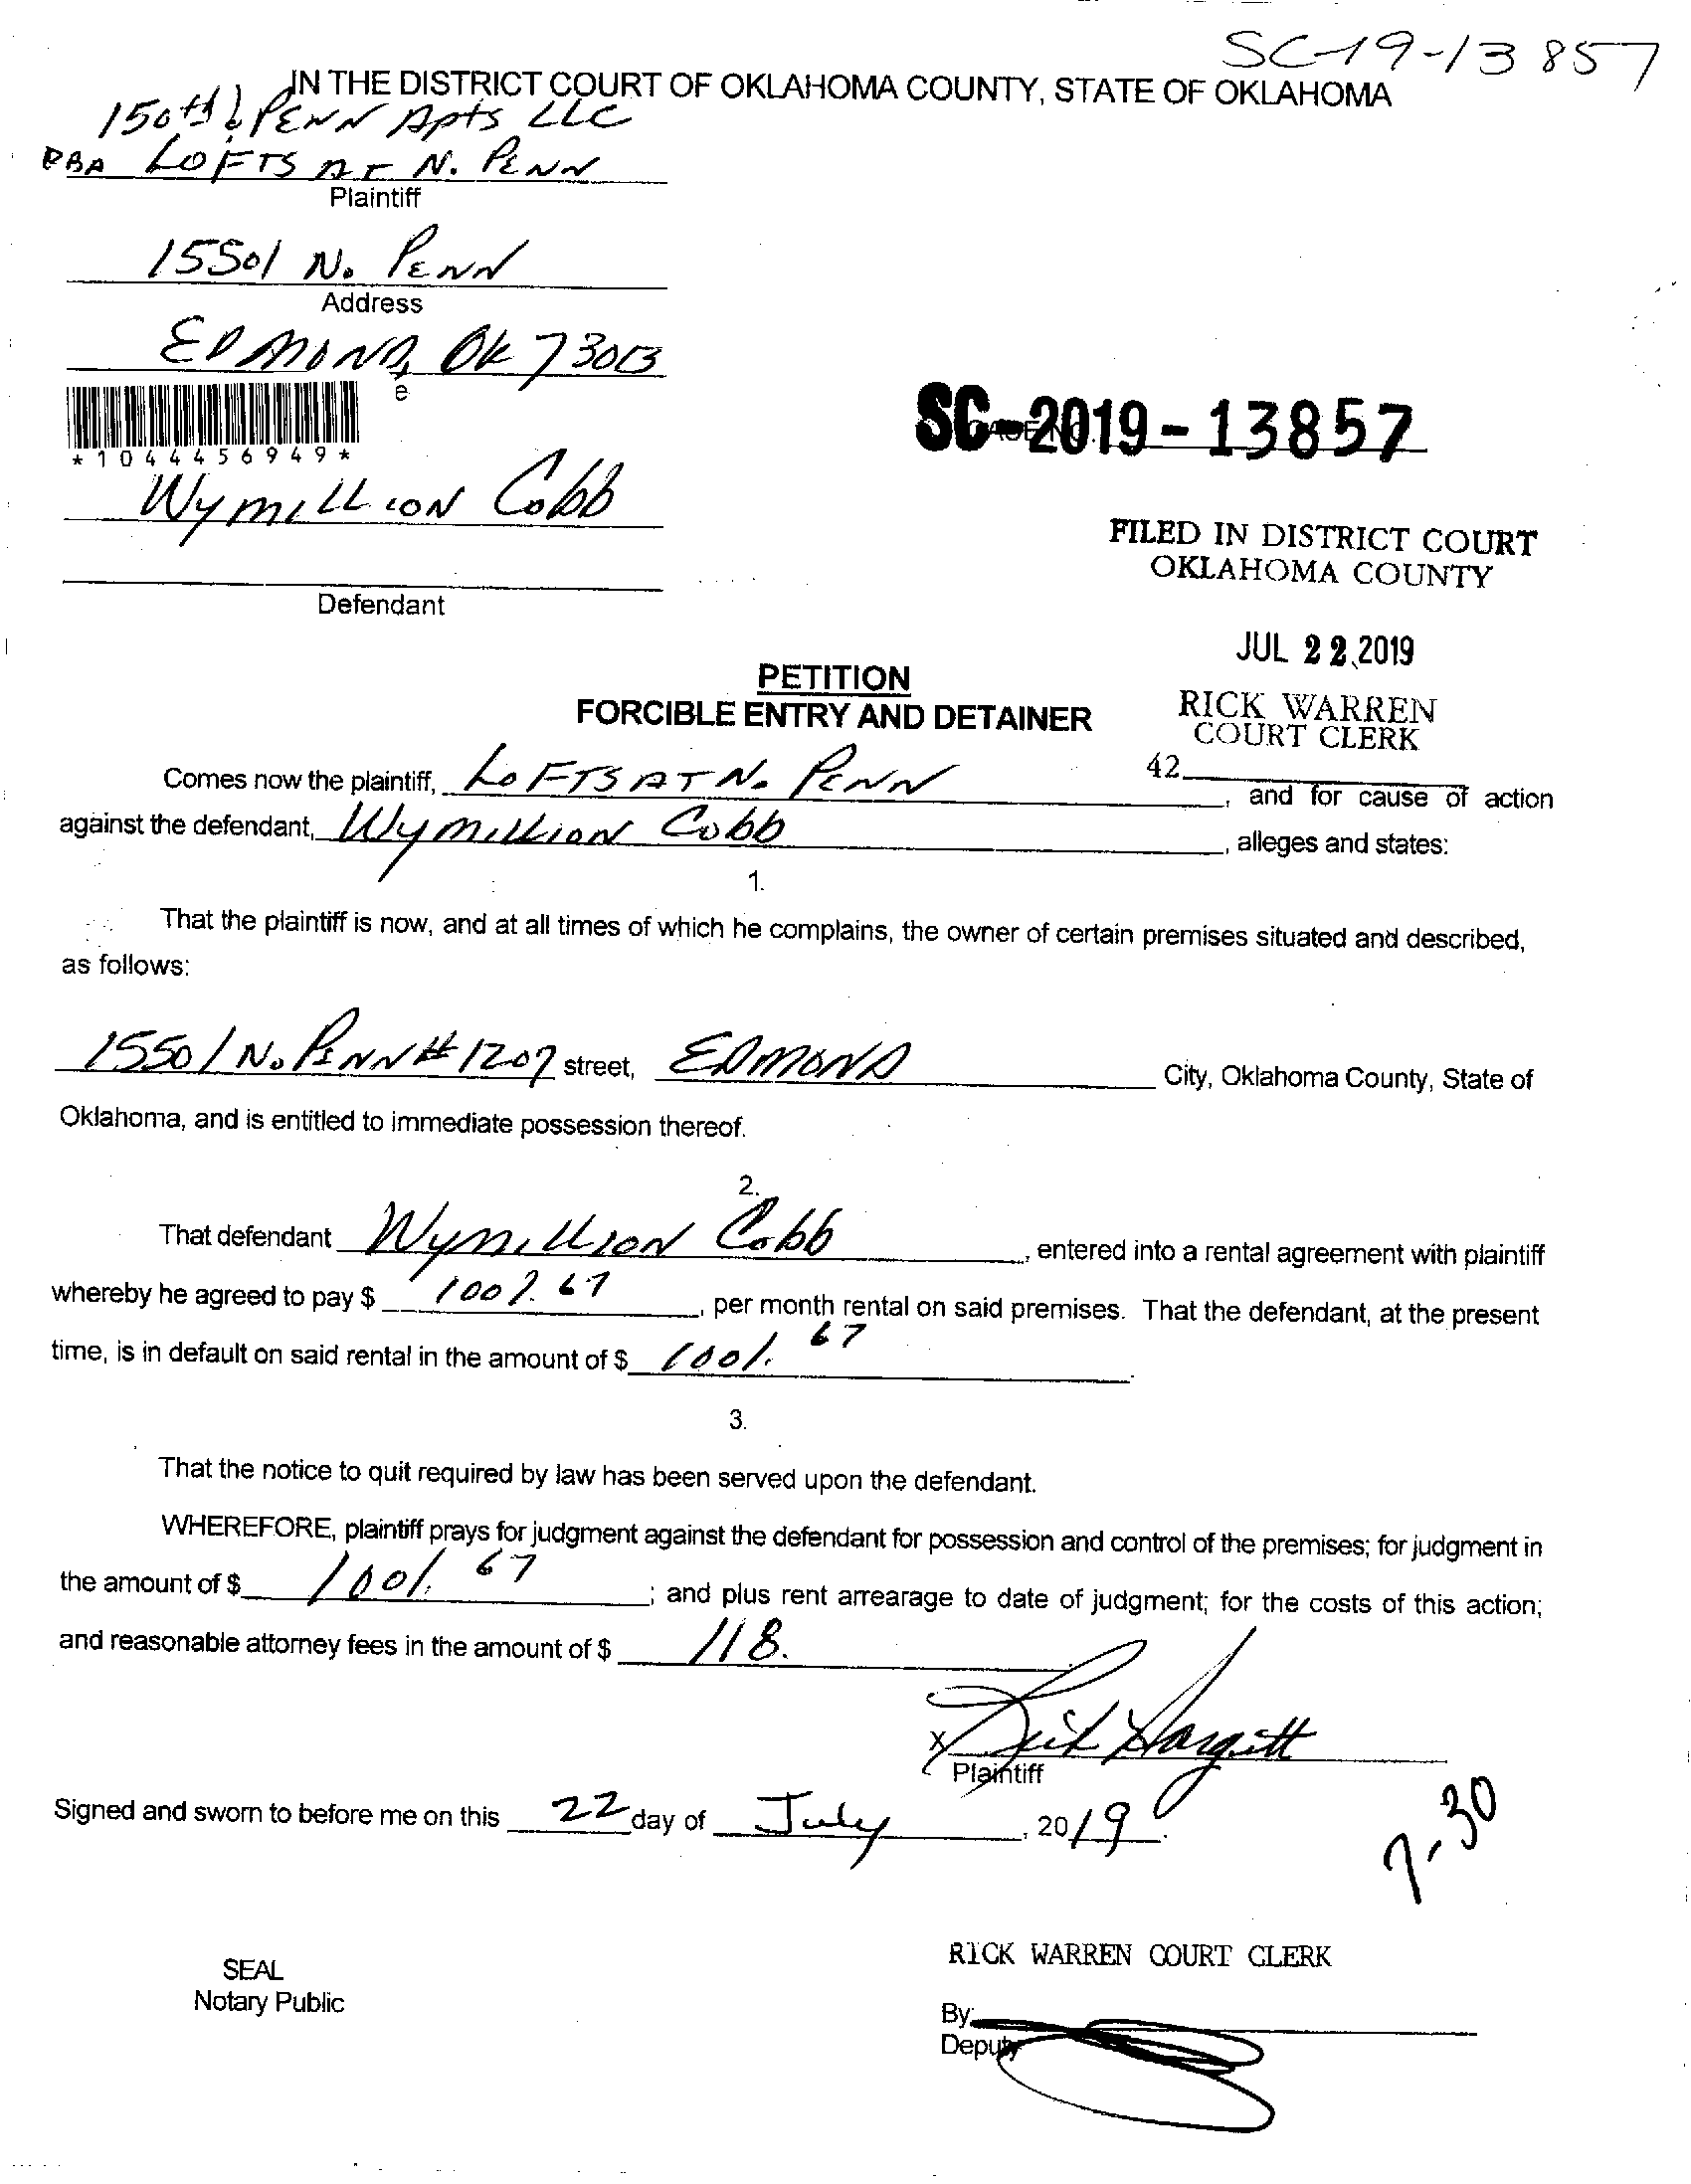 SC-19-13857
IN THE DISTRICT COURT OF OKLAHOMA COUNTY, STATE OF OKLAHOMA
150th & PENN Apts LLC
DBA LOFTS AT N. PENN
Plaintiff
15501 N. PENN
Address
EDMOND, OK 73013
e
*1044456949*
SC-2019-13857
Wymillion Cobb
Defendant
FILED IN DISTRICT COURT
OKLAHOMA COUNTY
JUL 22 2019
RICK WARREN
COURT CLERK
42
PETITION
FORCIBLE ENTRY AND DETAINER
Comes now the plaintiff, LOFTS AT N. PENN, and for cause of action
against the defendant, Wymillion Cobb, alleges and states:
1.
That the plaintiff is now, and at all times of which he complains, the owner of certain premises situated and described,
as follows:
15501 N. PENN # 1207 street, EDMOND City, Oklahoma County, State of
Oklahoma, and is entitled to immediate possession thereof.
2.
That defendant Wymillion Cobb, entered into a rental agreement with plaintiff
whereby he agreed to pay $ 1001.67, per month rental on said premises. That the defendant, at the present
time, is in default on said rental in the amount of $ 1001.67.
3.
That the notice to quit required by law has been served upon the defendant.
WHEREFORE, plaintiff prays for judgment against the defendant for possession and control of the premises; for judgment in
the amount of $ 1001.67; and plus rent arrearage to date of judgment; for the costs of this action;
and reasonable attorney fees in the amount of $ 118.
x
Plaintiff
Signed and sworn to before me on this 22 day of July, 2019.
7-30
RICK WARREN COURT CLERK
SEAL
Notary Public
By:
Deputy